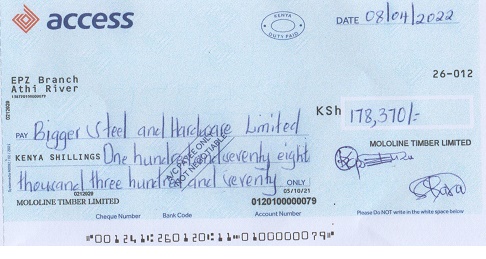 access
KENYA
DUTY PAID
DATE 08/04/2022
EPZ Branch
Athi River
26-012
PAY Bigger Steel and Hardware Limited
KSh 178,370/-
KENYA SHILLINGS One hundred and seventy eight
thousand three hundred and seventy ONLY
A/C PAYEE ONLY
NOT NEGOTIABLE
MOLOLINE TIMBER LIMITED
0212029
05/10/21
MOLOLINE TIMBER LIMITED
0120100000079
Cheque Number Bank Code Account Number
Please Do NOT write in the white space below